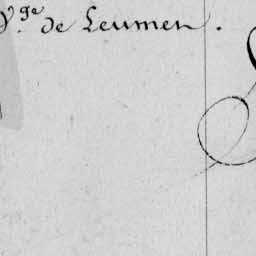 V.ge de Leumen.